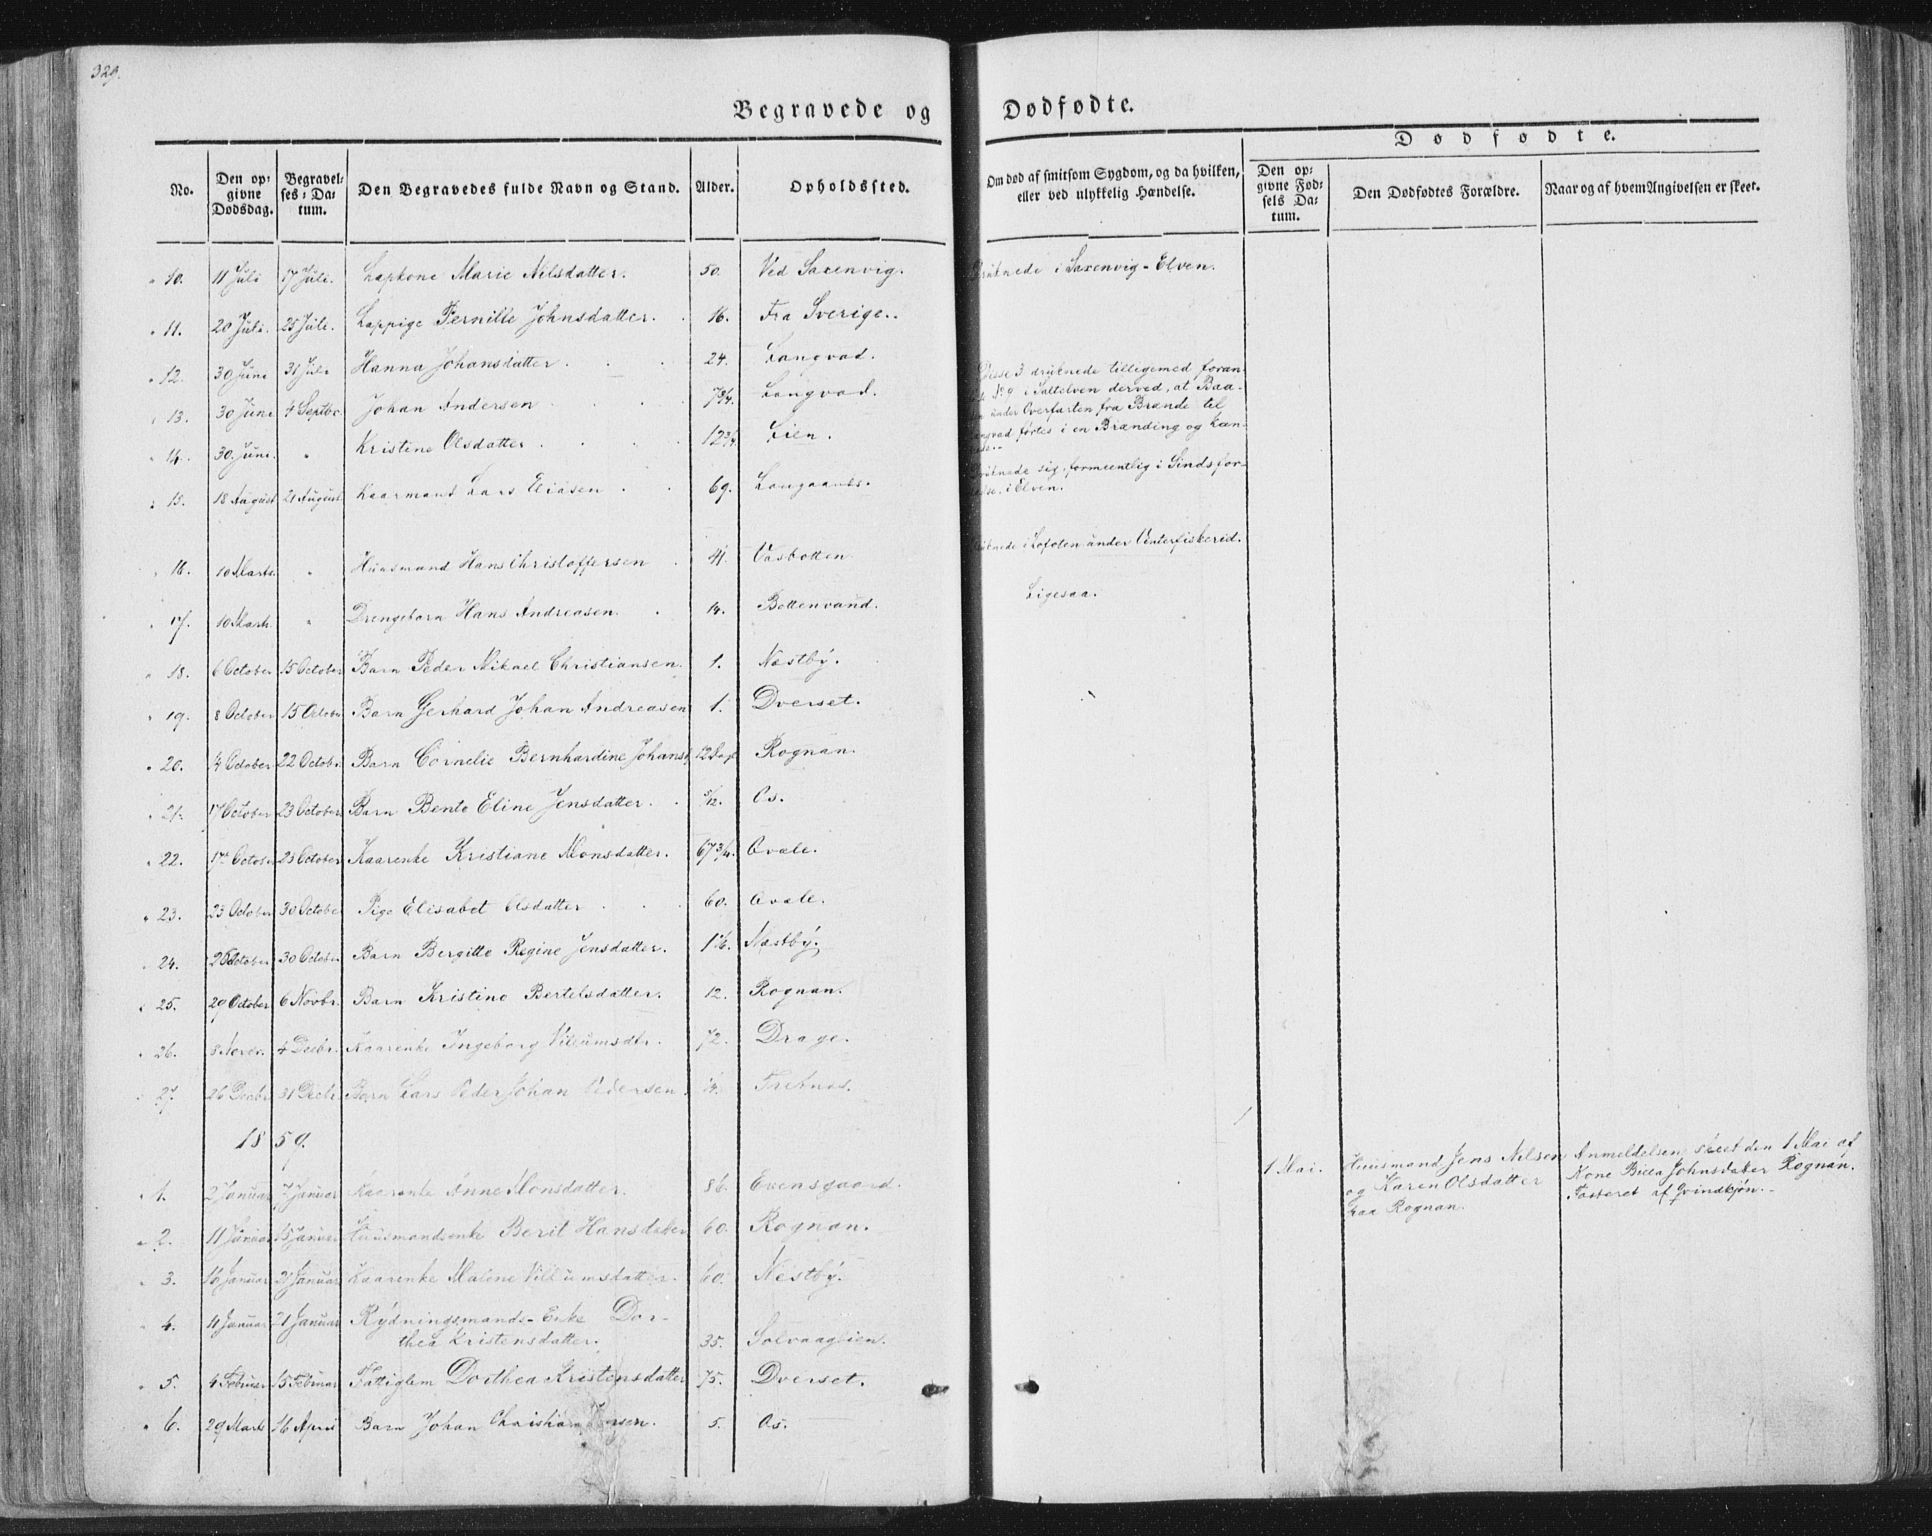 329.
Begravede og Dødfødte.
No.
Den opgivne Dødsdag.
Begravelses-Datum.
Den Begravedes fulde Navn og Stand.
Alder.
Opholdssted.
Om død af smitsom Sygdom, og da hvilken, eller ved ulykkelig Hændelse.
Dødfødte.
Den opgivne Fødsels Datum.
Den Dødfødtes Forældre.
Naar og af hvem Angivelsen er skeet.
10. 11 Juli 17 Juli. Lapkone Marie Nilsdatter. 50. Ved Saxenvig. Druknede i Saxenvig-Elven.
11. 20 Juli. 25 Juli. Lappige Pernille Johnsdatter. 16. Fra Sverige.
12. 30 Juni 31 Juli Hanna Johansdatter 24. Langvad.
13. 30 Juni 4 Septbr. Johan Andersen 7 3/4. Langvad.
14. 30. Juni " Kristine Olsdatter 12 3/4 Lien.
Disse 3 druknede tilligemed foran-
No 9 i Saltelven derved, at Baa-
den under Overfarten fra Brænde til
Langvad førtes i en Brænding og kæn-
15. 18 August 21 August Kaarmand Lars Eliasen 69. Langaanes.
Druknede sig, formeentlig i Sindsfor-
i Elven.
16. 10 Marts " Huusmand Hans Christoffersen 41. Vasbotten Druknede i Lofoten under Vinterfiskerid.
17. 10 Marts " Drengebarn Hans Andreasen. 14. Bottenvand. Ligesaa.
18. 6 October 15 October Barn Peder Mikael Christiansen. 1. Næstby.
19. 8 October 15 Octobr Barn Gerhard Johan Andreasen 1. Dverset.
20. 4 October 22 Octobr. Barn Cornelie Bernhardine Johans 12 Dage Rognan.
21. 17 October 23 October Barn Bente Eline Jensdatter. 5/12. Os.
22. 17 October 23 October Kaarenke Kristiane Monsdatter. 67 3/4. Evale.
23. 23 October 30 October Pige Elisabet Olsdatter 60. Evale.
24. October 30 October Barn Bergitte Regine Jensdatter. Næstby.
25. 29 October 6 Novbr. Barn Kristine Bertelsdatter. 12. Rognan.
26. 8 Novbr. 4 Decbr. Kaarenke Ingeborg Villumsdtr. 72. Drage.
27. 26 Decbr 31 Decbr. Barn Lars Peder Johan Pedersen Fretnes.
1859.
1 Mai. Huusmand Jens Nilsen og Karen Olsdatter fraa Rognan. Anmeldelsen skeet den 1 Mai af Kone Johnsdatter Rognan. Fosteret af Qvindkjøn.
1. 2 Januar 7 Januar Kaarenke Anne Monsdatter. 86. Evensgaard.
2. 11 Januar 15 Januar Huusmandsenke Berit Hansdatter 60. Rognan.
3. 16 Januar 21 Januar Kaarenke Malene Villumsdatter. 60. Nestby.
4. 11 Januar 21 Januar Rydningsmands-Enke Dor-
thea Kristensdatter. 35. Solvaaglien.
5. 4 Februar 15 Februar Fattiglem Dorthea Kristensdatter 75. Dverset.
6. 29 Marts 16 April Barn Johan Christian Jensen. 5. Os.